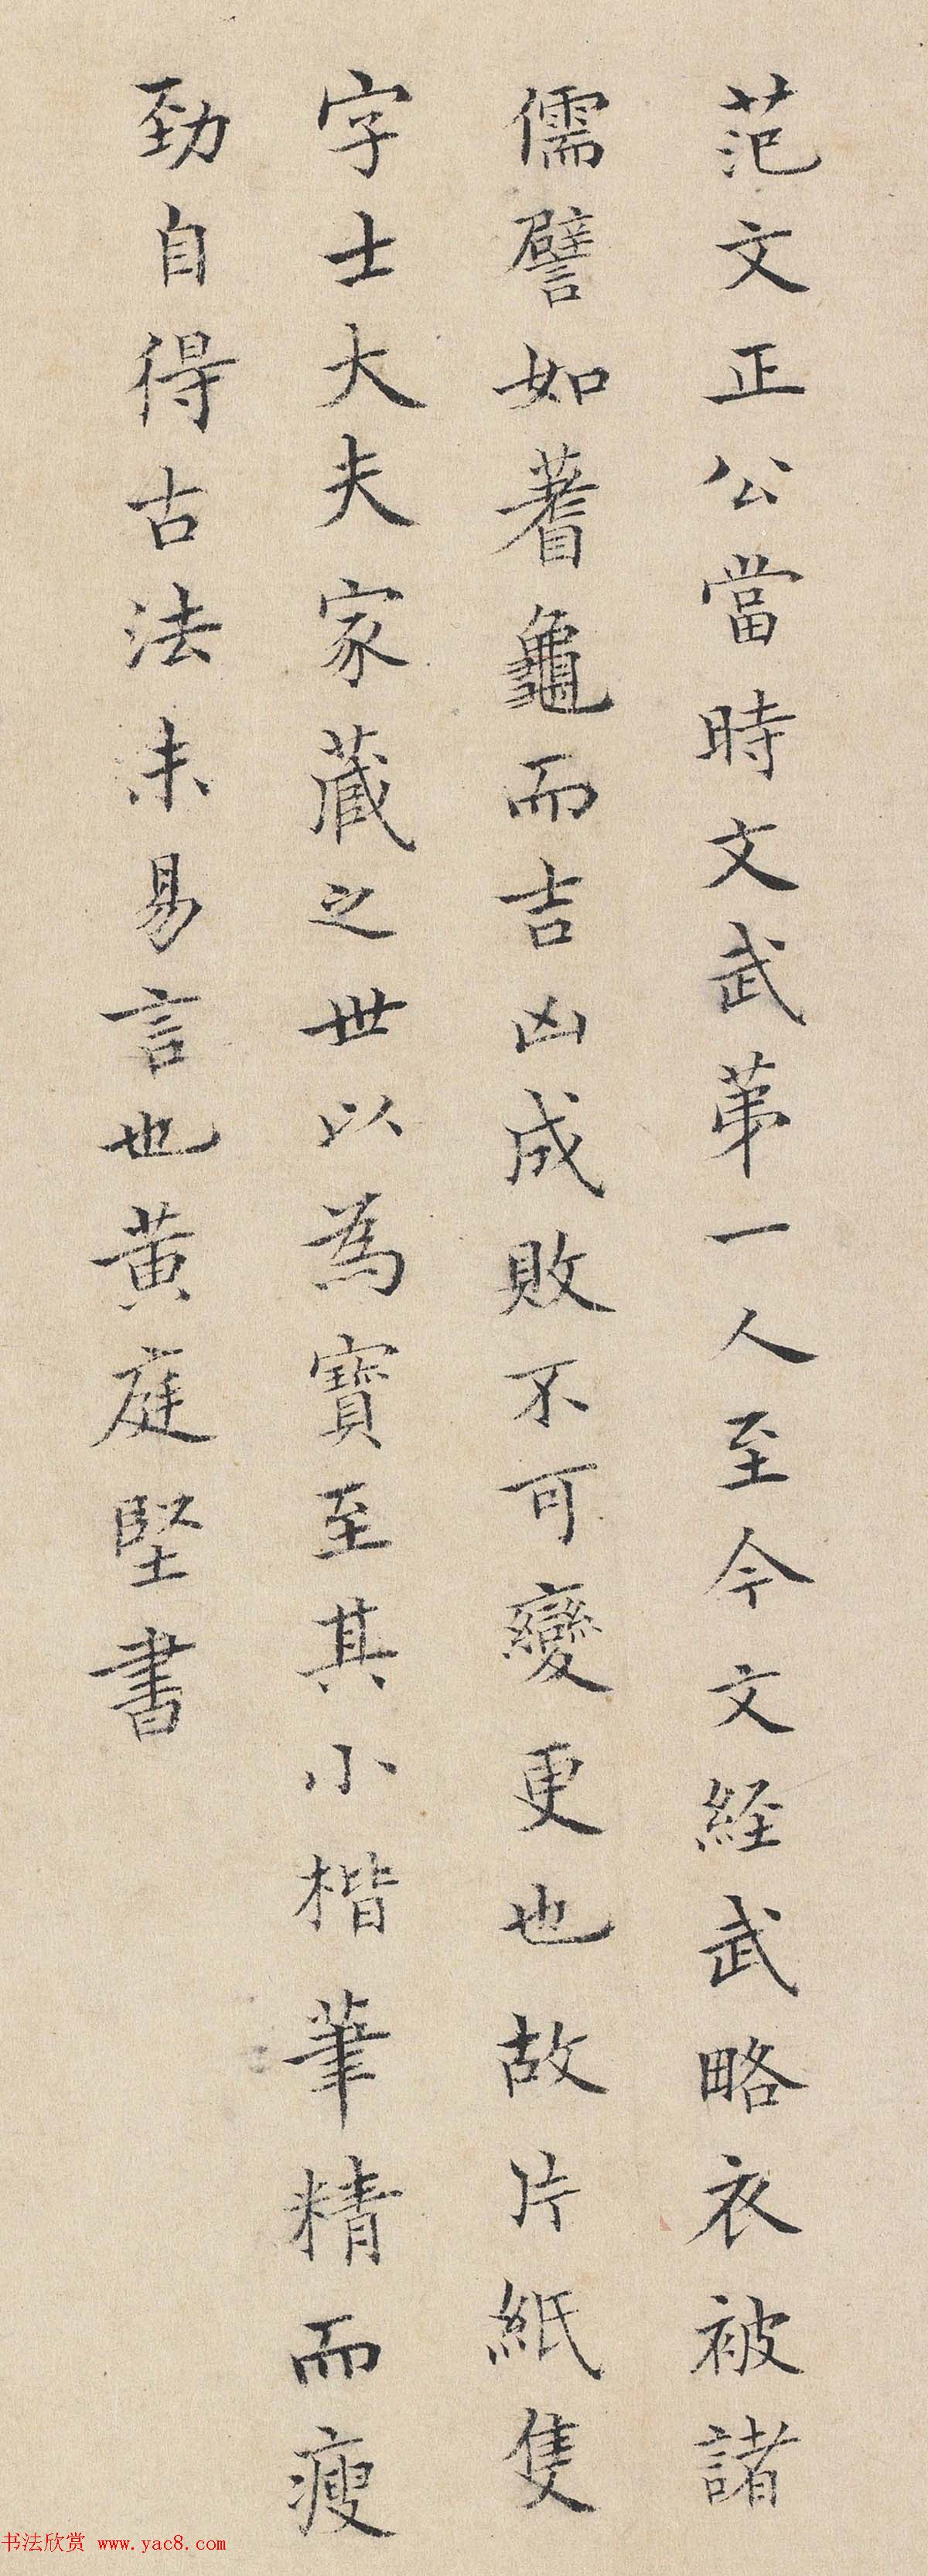 范文正公當時文武第一人至今文経武略衣被諸
儒譬如蓍龜而吉凶成敗不可變更也故片紙隻
字士大夫家藏之世以為寶至其小楷筆精而瘦
勁自得古法未易言也黄庭堅書
书法欣赏 www.yac8.com